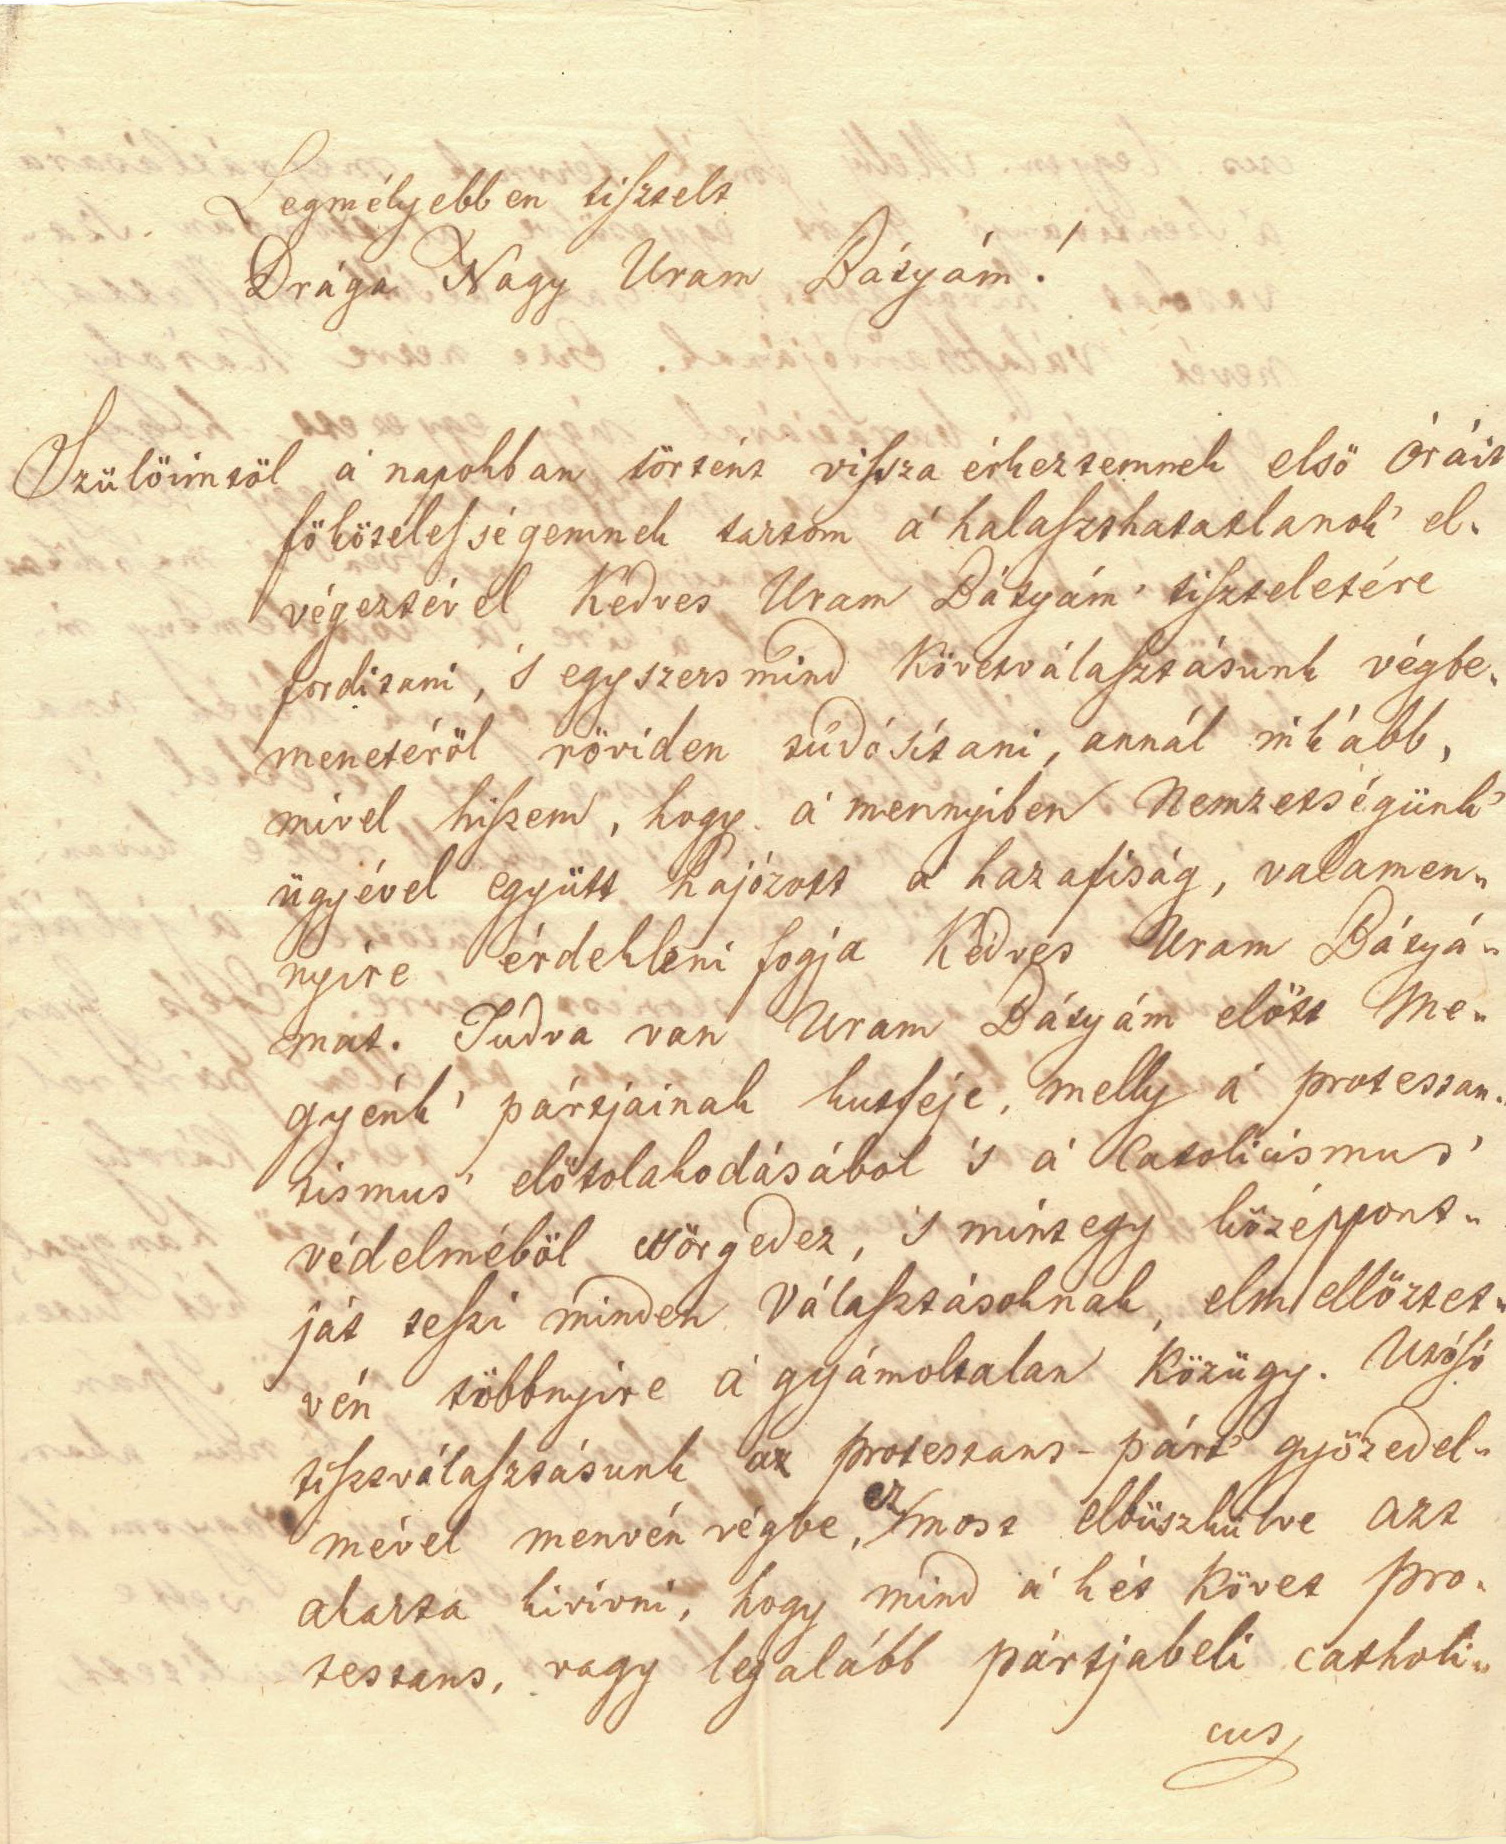 Legmélyebben tisztelt
Drága Nagy Uram Bátyám!
Szülöimtöl a' napokban történt vissza érkeztemnek elsö óráit
fökötelességemnek tartom a' halaszthatatlanok' el-
végeztével Kedves Uram Bátyám' tiszteletére
forditani, 's egyszersmind Követválasztásunk végbe-
menetéröl röviden tudósítani, annál inkább,
mivel hiszem, hogy a' mennyiben Nemzetségünk'
ügyével együtt hajózott a' hazafiság, valamen-
nyire érdekleni fogja Kedves Uram Bátyá-
mat. Tudva van Uram Bátyám elött Me-
gyénk' pártjainak kutfeje, melly a' protestan-
tismus' elötolakodásából 's a' Catolicismus'
védelméböl csörgedez, 's mintegy középpont-
ját teszi minden Választásoknak, elmellöztet-
vén többnyire a' gyámoltalan Közügy. Utósó
tisztválasztásunk az protestans-párt' gyözedel-
mével menvén végbe, ez most elbüszkülve azt
akarta kivívni, hogy mind a' két Követ pro-
testans, vagy legalább pártjabeli catholi-
cus